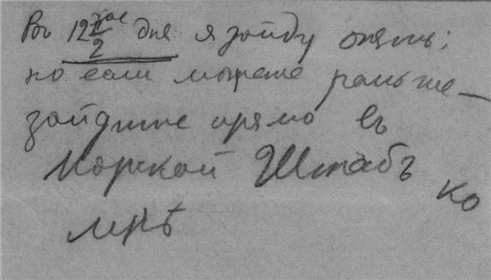 Въ 12 1/2 дня я зайду опять;
но если можете раньше —
зайдите прямо въ
Морской Штабъ ко
мнѣ